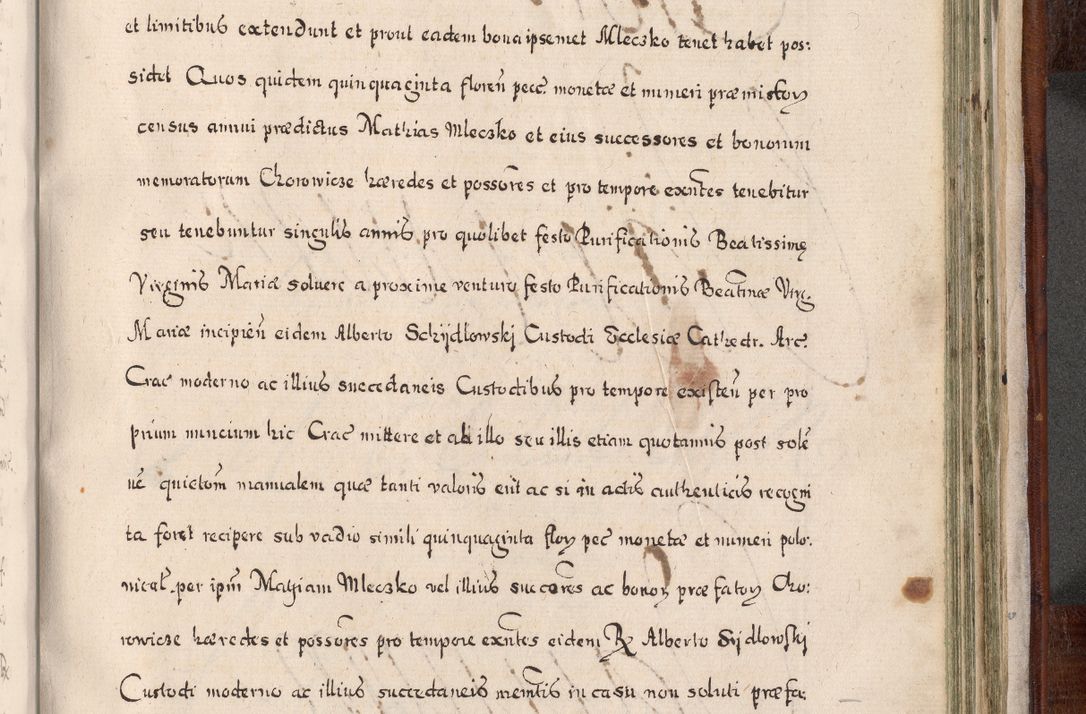 et limitibus extendunt et prout eadem bona ipsemet Mleczko tenet habet pos:
sidet Quos quidem quinquaginta floren̄ pecc̄ monetæ et numeri præmistoꝝ
census annui prædictus Mathias Mleczko et eius successores et bonorum
memoratorum Chorowicze hæredes et possōres et pro tempore exn̄tes tenebitur
seu tenebuntur singulis annis pro quolibet festo Purificationis Beatissimę
Virginis Mariæ soluere a proxime venturo festo Purificationis Beatīnæ Virg.
Mariæ incipien̄ eidem Alberto Schÿdlowskj Custodi Ecclesiæ Cathedr. Arc̄.
Crac̄ moderno ac illius succedaneis Custodibus pro tempore existen̄ per pro
prium nuncium hic Crac̄ mittere et ab illo seu illis etiam quotannis post solē
nē quietōm manualem quæ tanti valoris erit ac si in actis authenticis recogni
ta foret recipere sub vadio simili quinquaginta floꝝ pec̄ monetæ et numeri polo:
nical. per ipm̄ Mathiam Mleczko vel illius succōres ac bonoꝝ præfatoꝝ Cho:
rowicze hæredes et possōres pro tempore exn̄tes eidem R Alberto Sÿdlowskj
Custodi moderno ac illius succedaneis mem̄tis in casu non soluti præfa: